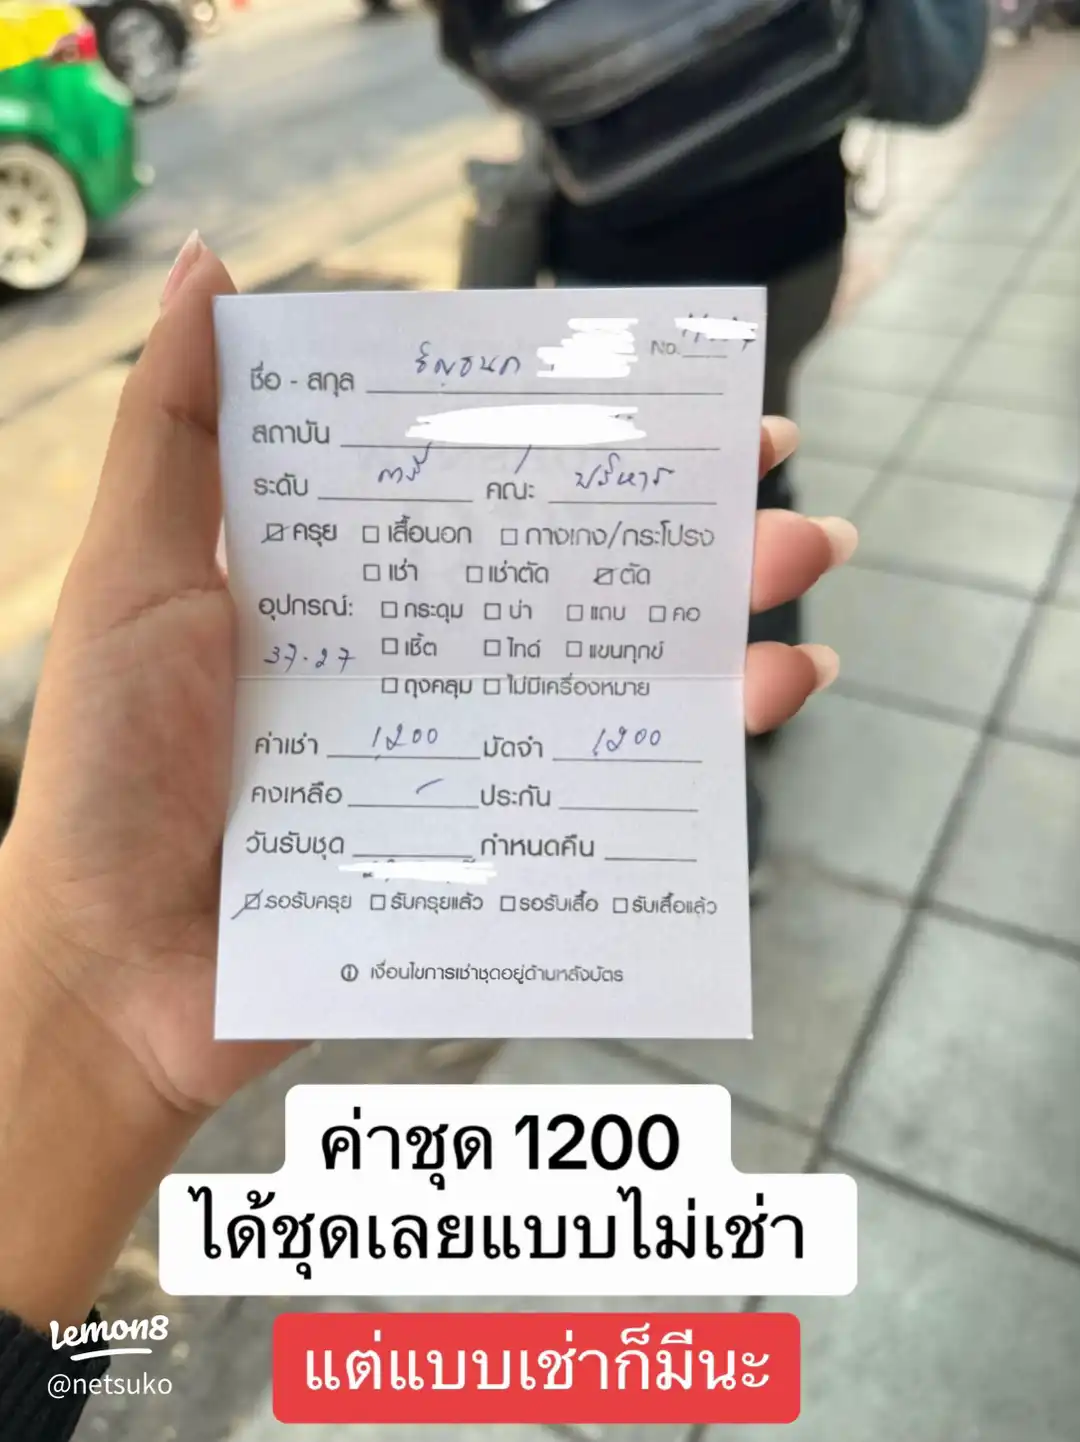 No.
ชื่อ - สกุล ธัญชนก
สถาบัน
ระดับ ตรี คณะ บริหาร
ครุย เสื้อนอก กางเกง/กระโปรง
เช่า เช่าตัด ตัด
อุปกรณ์: กระดุม บ่า แถบ คอ
37.27 เชิ้ต ไทด์ แขนทุกข์
ถุงคลุม ไม่มีเครื่องหมาย
ค่าเช่า 1200 มัดจำ 1200
คงเหลือ ประกัน
วันรับชุด กำหนดคืน
รอรับครุย รับครุยแล้ว รอรับเสื้อ รับเสื้อแล้ว
เงื่อนไขการเช่าชุดอยู่ด้านหลังบัตร
ค่าชุด 1200
ได้ชุดเลยแบบไม่เช่า
แต่แบบเช่าก็มีนะ
lemon8
@netsuko